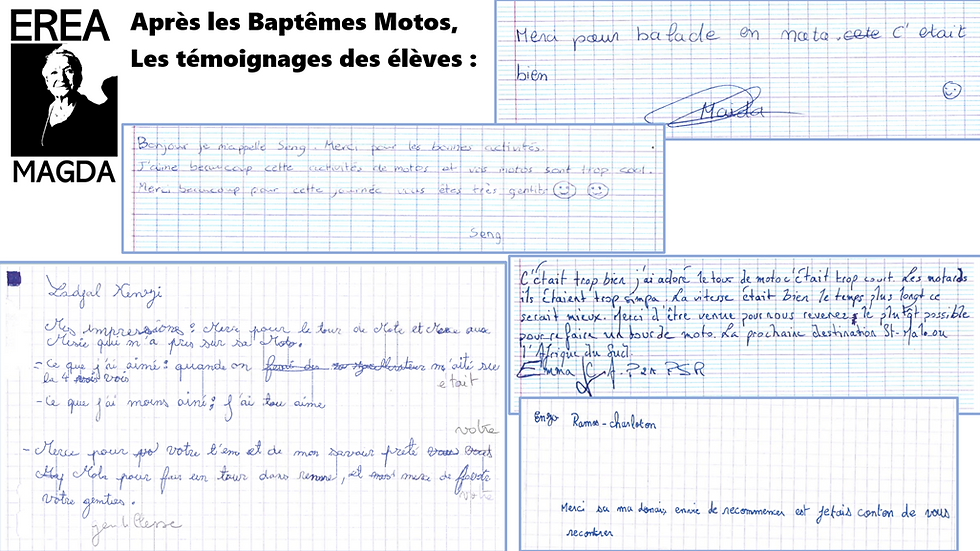 EREA
MAGDA
Après les Baptêmes Motos,
Les témoignages des élèves :
Merci pour balade en moto. cete C'etait
bien
Maida
Bonjour je m'appelle Seng. Merci pour les bonnes activités.
J'aime beaucoup cette activités de motos et vos motos sont trop cool.
Merci beaucoup pour cette journée vous êtes très gentils
Seng
Ladjal
Mes impressions : Merci pour le tour de Moto et aux
qui m'a pris sur sa Moto.
- Ce que j'ai aimé : quande on
la 4 voie etait
- Ce que j'ai moins aimé : j'ai tou aime
votre
- Merci pour votre et de mon prété
Moto pour fair un tour dans renne, et
votre
votre genties.
gentillesse
C'était trop bien j'ai adoré le tour de moto c'était trop court. Les motards
ils étaient trop simpa. La vitesse était Bien le temps plus longt ce
serait mieux. Merci d'être venue pour nous revenez le plutôt possible
pour refaire un bout de moto. La prochaine destination St-Malo ou
l'Afrique du Sud.
Emma
Enzo Ramos-charloton
Merci sa ma donais envie de recommencer est jetais conton de vous
recontrer